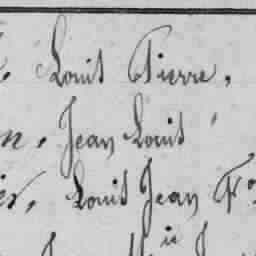 Louis Pierre,
n, Jean Louis
er, Louis Jean F